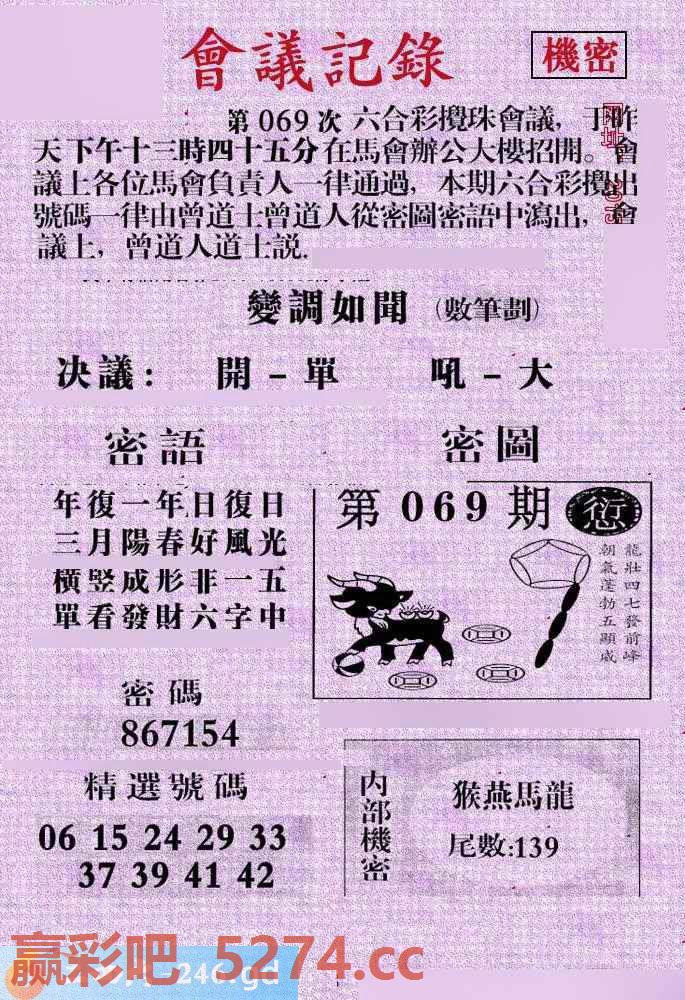 會議記錄
機密
第 069 次 六合彩攪珠會議，于昨
天下午十三時四十五分在馬會辦公大樓招開。會
議上各位馬會負責人一律通過，本期六合彩攪出
號碼一律由曾道士曾道人從密圖密語中瀉出，會
議上，曾道人道士説.
變調如聞 (數筆劃)
决議: 開 - 單 吼 - 大
密語
年復一年日復日
三月陽春好風光
橫竪成形非一五
單看發財六字中
密圖
第 069 期
龍壯四七發前峰
朝氣蓬勃五顯威
密碼
867154
精選號碼
06 15 24 29 33
37 39 41 42
内部機密
猴燕馬龍
尾數:139
赢彩吧 5274.cc